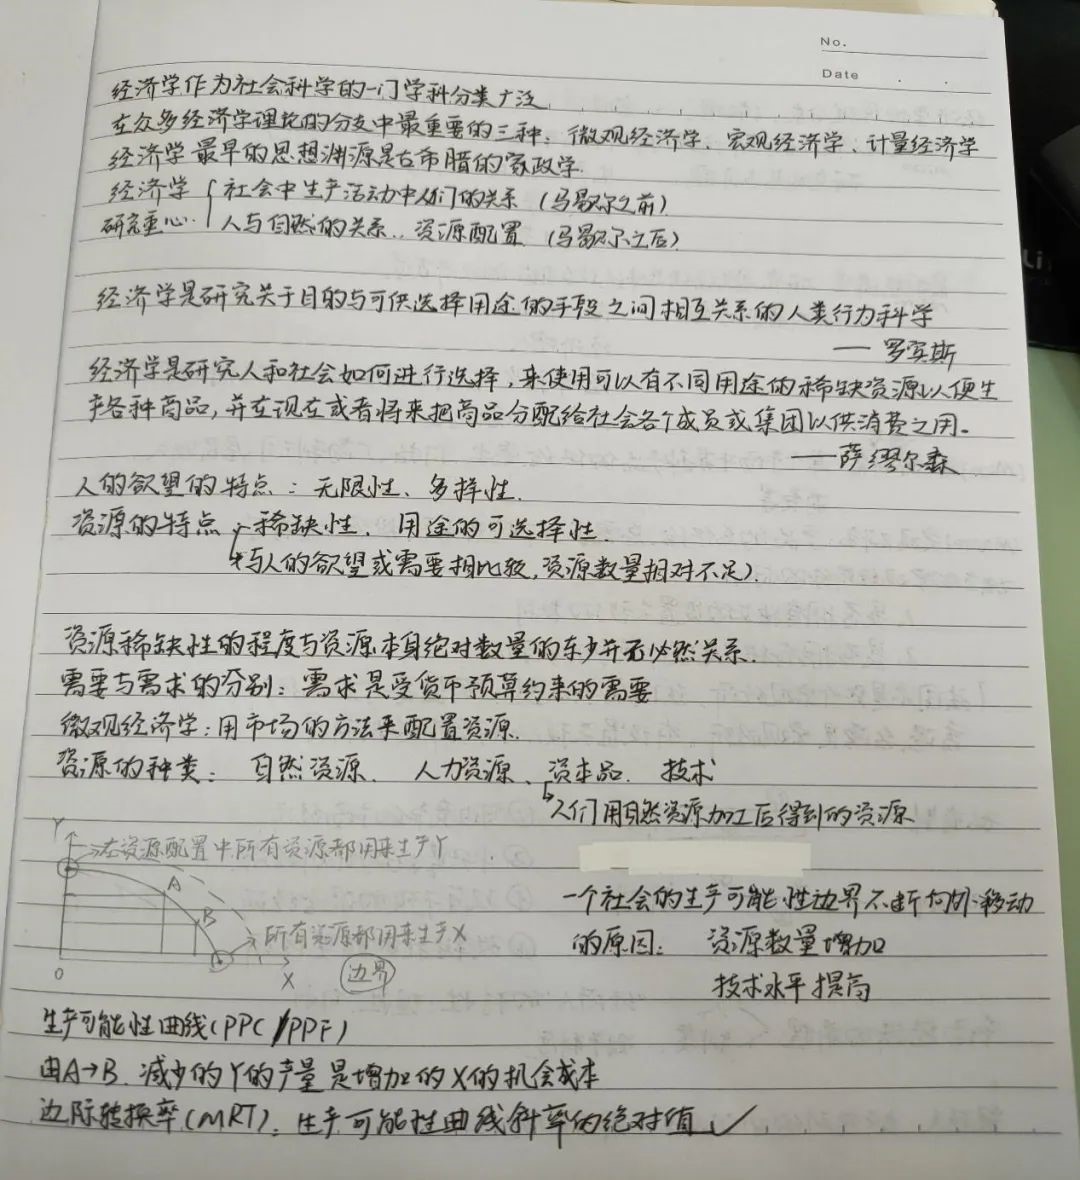 No.
Date
经济学作为社会科学的一门学科分类广泛
在众多经济学理论的分支中最重要的三种：微观经济学、宏观经济学、计量经济学
经济学最早的思想渊源是古希腊的家政学.
经济学 { 社会中生产活动中人们的关系 (马歇尔之前)
研究重心. 人与自然的关系.. 资源配置 (马歇尔之后)
经济学是研究关于目的与可供选择用途的手段之间相互关系的人类行为科学
——罗宾斯
经济学是研究人和社会如何进行选择，来使用可以有不同用途的稀缺资源以便生
产各种商品，并在现在或者将来把商品分配给社会各个成员或集团以供消费之用。
——萨缪尔森
人的欲望的特点：无限性、多样性.
资源的特点 稀缺性、用途的可选择性.
与人的欲望或需要相比较,资源数量相对不足).
资源稀缺性的程度与资源本身绝对数量的多少并无必然关系.
需要与需求的分别：需求是受货币预算约束的需要
微观经济学：用市场的方法来配置资源.
资源的种类： 自然资源、 人力资源、 资本品. 技术
↳人们用自然资源加工后得到的资源
Y
→在资源配置中所有资源都用来生产Y
A
B
→所有资源都用来生产X
0
X
边界
一个社会的生产可能性边界不断向外移动
的原因： 资源数量增加
技术水平提高
生产可能性曲线(PPC/PPF)
由A→B. 减少的Y的产量是增加的X的机会成本
边际转换率(MRT)：生产可能性曲线斜率的绝对值 ✓